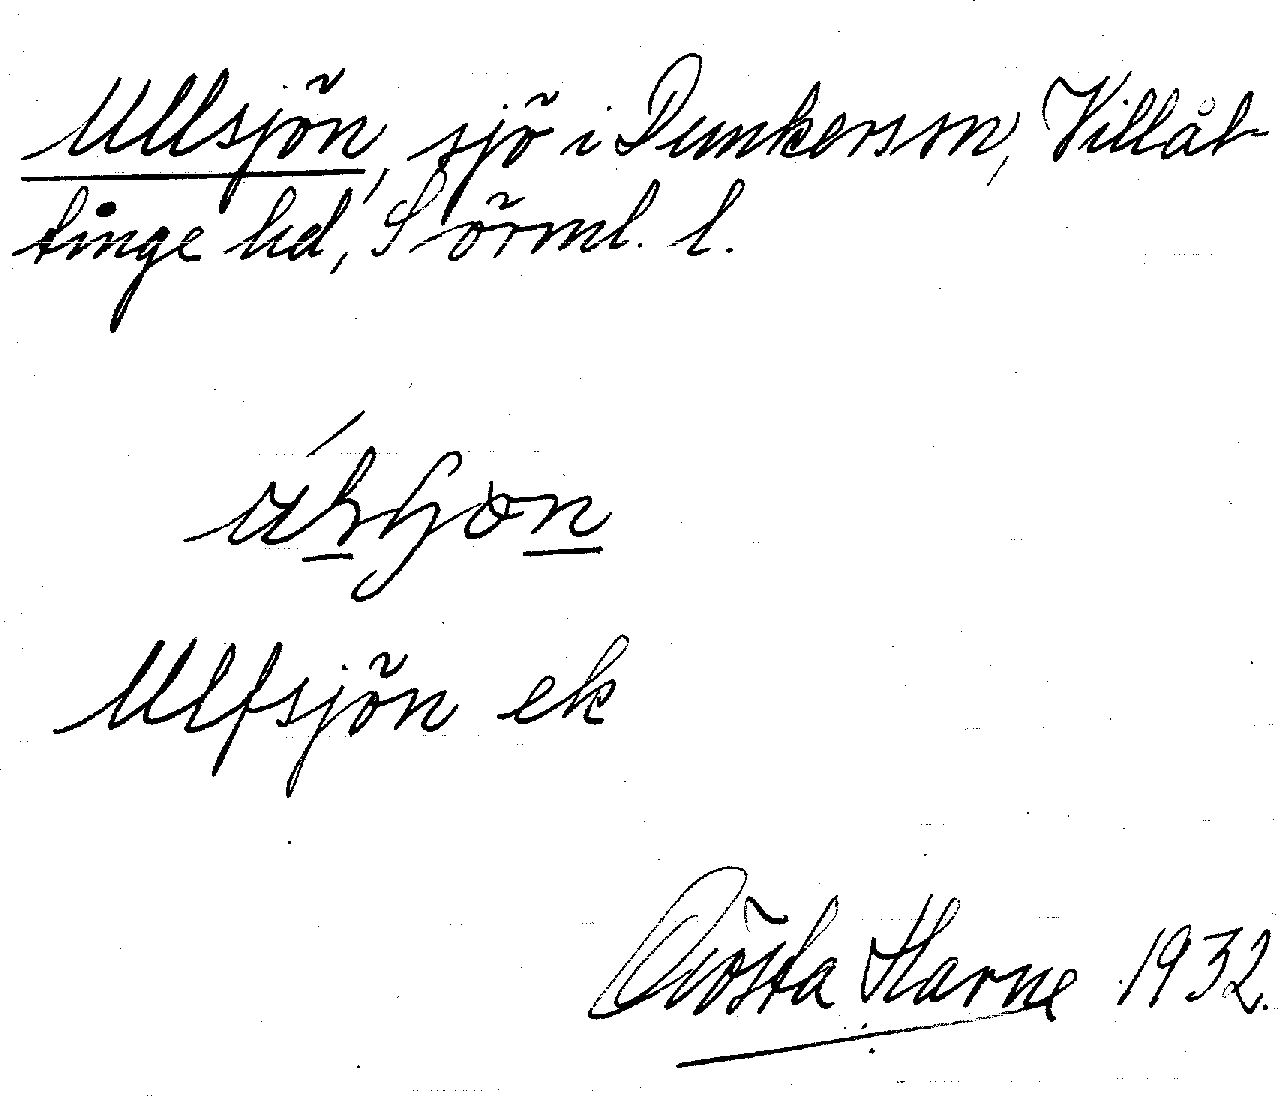 Ullsjön, sjö i Dunkers sn, Villåt-
tinge hd, Sörml. l.
Ulfsjön ek
Gösta Harne 1932.